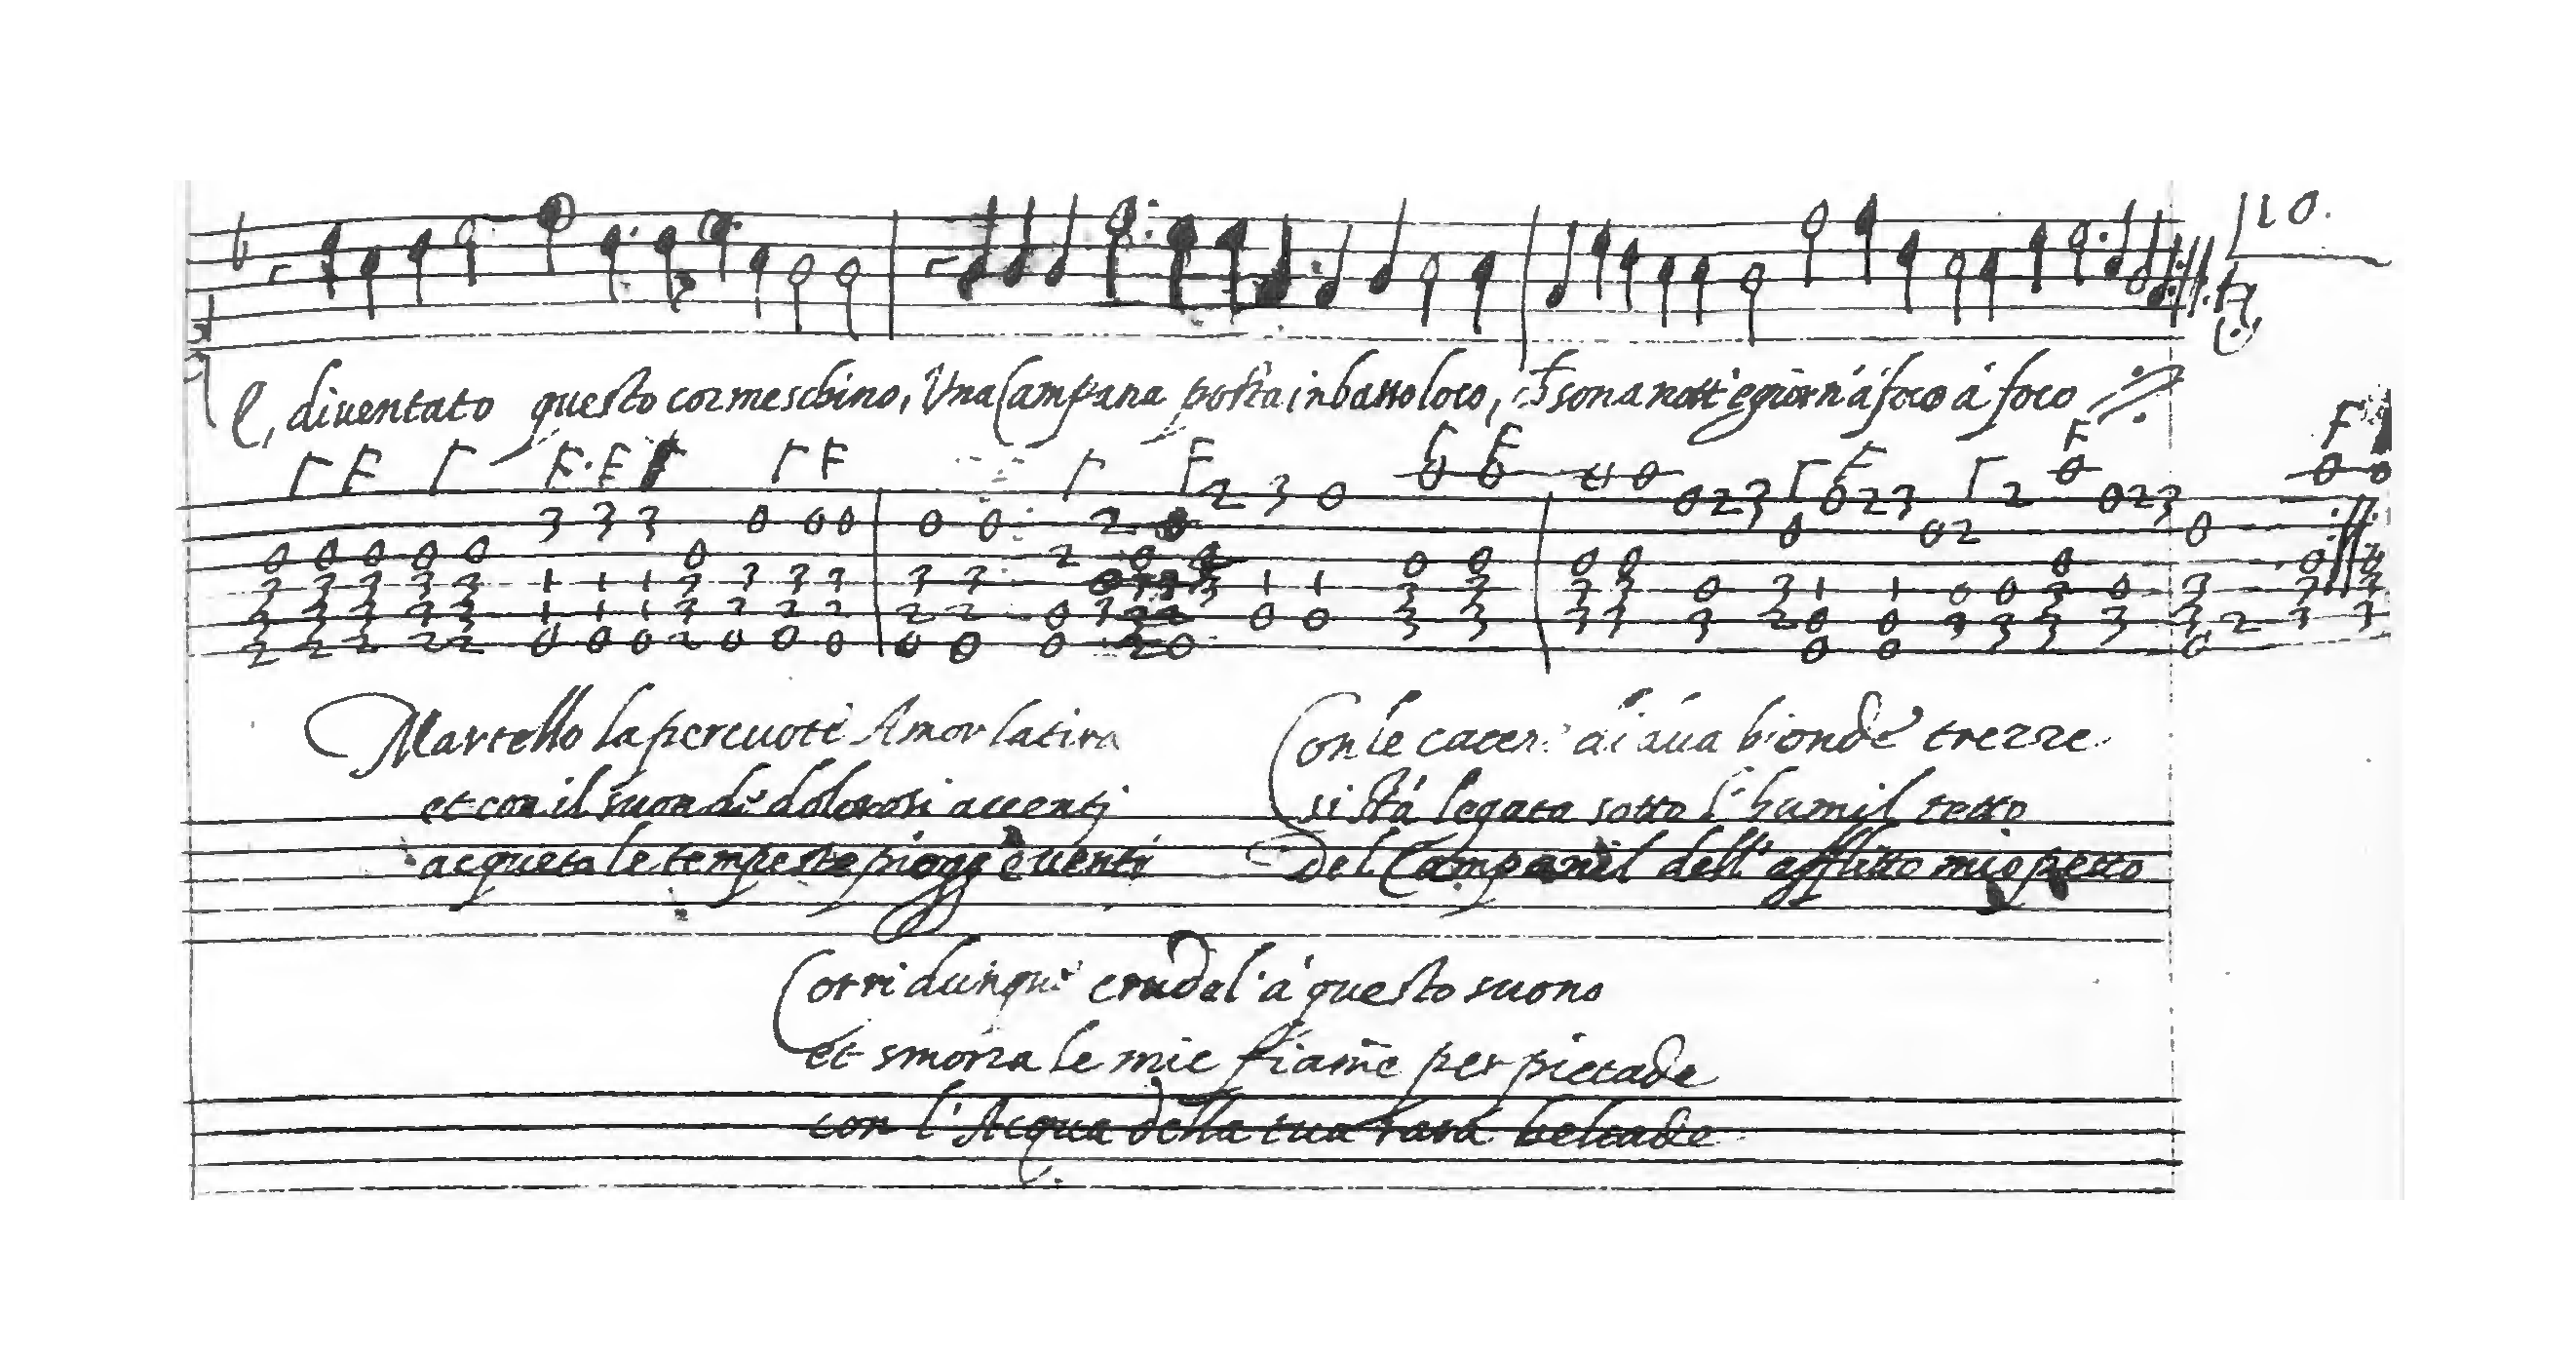 10.
E, diventato questo cor meschino, Una Campana posta in basso loco, Et sona nott' e giorn' á foco á foco
Martello la percuote Amor la tira
et con il suon di dolorosi accenti
acqueta le tempeste piogge è venti
Con le di sua bionde trezze
si stá legata sotto l'humil tetto
Del Campanil dell' afflitto mio petto
Corri dunque crudel' á questo suono
et smorza le mie fiam̃e per pietade
con l'Acqua della tua rara beltade